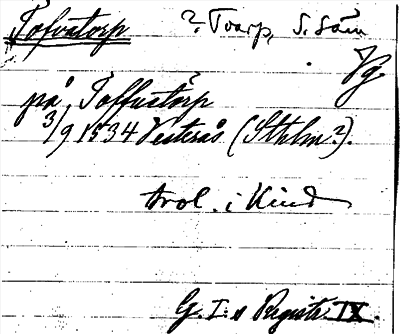 Tofvatorp ? Toarp, S. Säm
Vg
på Toffuetorp
3/9 1534 Vesterås (Sthlm?).
trol. i Kind
G. I:s Registr. IX.